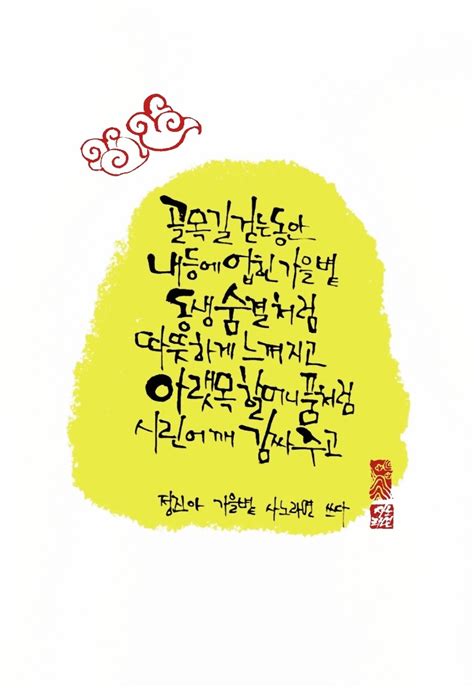 골목길 걷는동안
내등에 업힌 가을볕
동생 숨결처럼
따뜻하게 느껴지고
아랫목 할머니 품처럼
시린어깨 감싸주고
정진아 가을볕 사노라면 쓰다